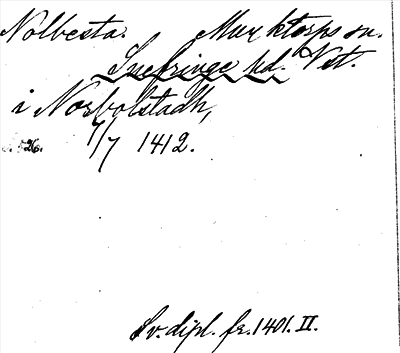 Nolbesta. Munktorps sn.
Snefringe hd. Vst.
i Norbolstadh,
7/7 1412.
Sv. dipl. fr. 1401. II.